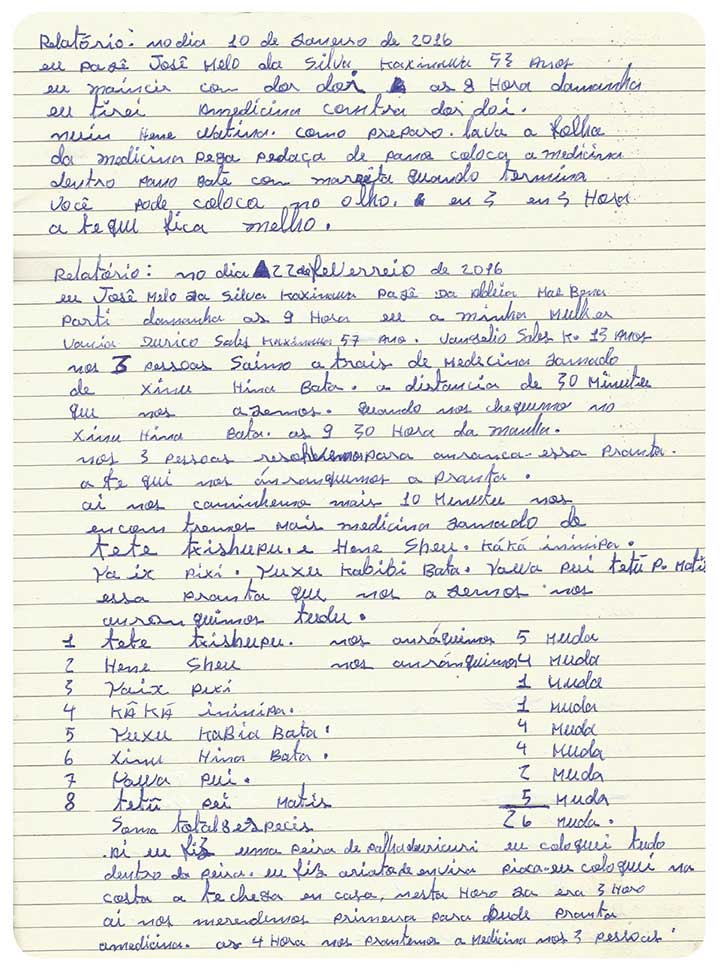 Relatório: no dia 10 de Janeiro de 2016
eu pagê José Melo da Silva Kaxinawa 53 Anos
eu com dor doi as 8 Hora damanha
eu tirei amedicina contra dor doi.
Hene como preparo. lava a folha
da medicina pega pedaça de pano coloca a medicina
dentro pano Bate com quando termina
Você pode coloca no olho. en 3 en 3 Hora
a tequi fica melho.
Relatório: no dia 22 de feverreio de 2016
eu José Melo da Silva Kaxinawa pagê da Aldeia Mae Bena
Parti damanha as 9 Hora eu a minha Mulher
Sales Kaxinawa 57 Ano. Sales K. 13 Anos
nos 3 pessoas Saimo a trais de Medicina Jamado
de Xinu Hina Bata. a distancia de 30 Minutu
que nos azemos. quando nos chequemo no
Xinu Hina Bata. as 9 30 Hora da manha.
nos 3 pessoas para anranca essa pranta.
a te qui nos ánranquemos a pranta.
ai nos caminhemo mais 10 Menutu nos
encontremos mais medicina Jamado de
tete txishupu. e Hene Sheu. Káká ininipa.
Yaix pixi. Yuxu Kabibi Bata. Yawa pui tetũ P. Matis
essa pranta que nos azemos nos
anranquimos tudu.
1 tete txishupu. nos anráquimos 5 Muda
2 Hene Sheu nos anránquimos 4 Muda
3 Yaix pixi 1 Muda
4 KÃKÃ ininipa. 1 Muda
5 Yuxu KaBia Bata. 4 Muda
6 Xinu Hina Bata. 4 Muda
7 Yawa pui. 2 Muda
8 tetũ pei Matis 5 Muda
Soma total 8 especis 26 Muda.
Ai eu fiz uma peira de palha duricuri eu coloquei tudo
dentro da peira. eu fiz de envira eu coloquei na
costa a te chega en casa, nesta Horo Ja era 3 Horo
ai nos merendemos primeira para pude pranta
amedicina. as 4 Hora nos prantemos a Medicina nos 3 pessoas.